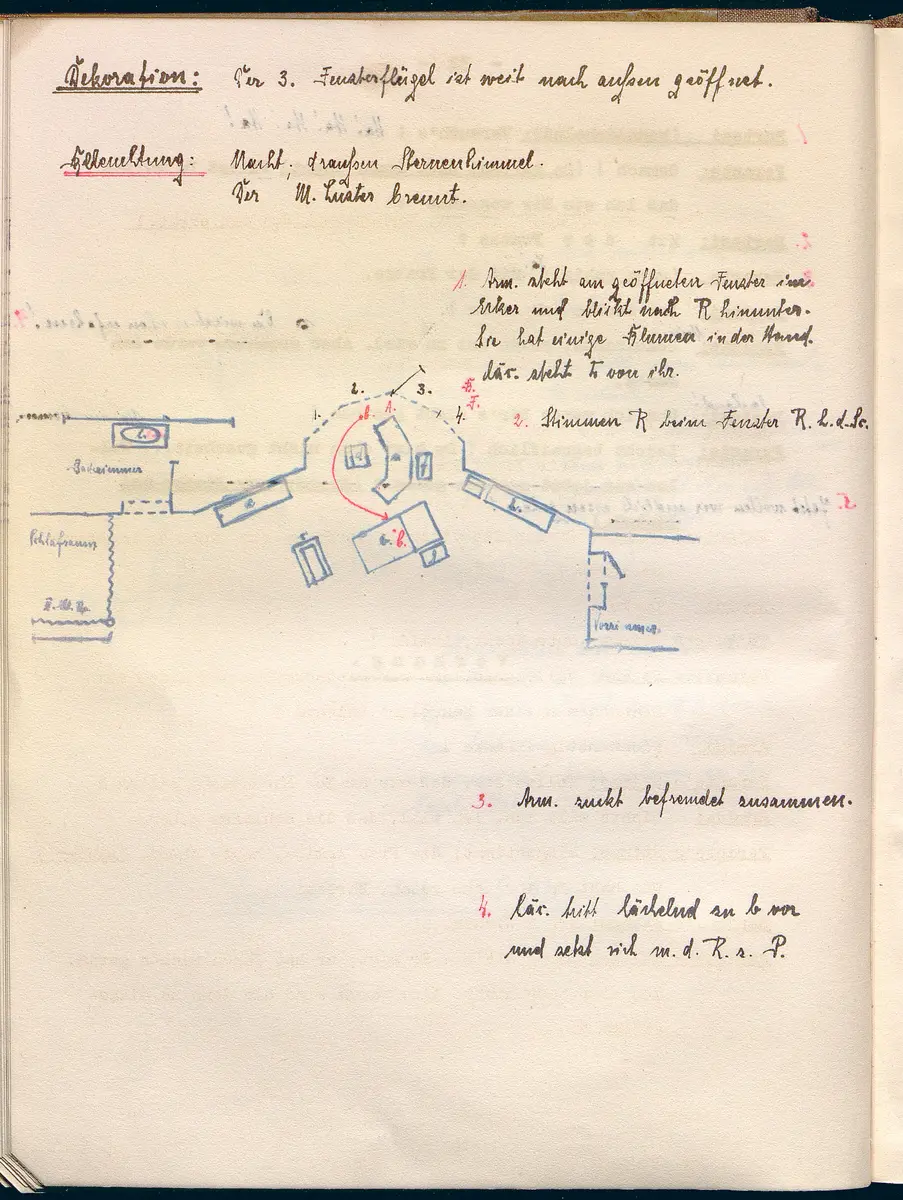 Dekoration: Der 3. Fensterflügel ist weit nach außen geöffnet.
Beleuchtung: Nacht, draußen Sternenhimmel.
Der M. Luster brennt.
1. Arm. steht am geöffneten Fenster im
Erker und blickt nach R hinunter.
Sie hat einige Blumen in der Hand.
Cäs. steht L von ihr.
2. 3.
1. 4.
2. Stimmen R beim Fenster R. h. d. Sc.
Badezimmer
Schlafraum
Vorzimmer
3. Arm. zuckt befremdet zusammen.
4. Cäs. tritt lächelnd zu b vor
und setzt sich m. d. R. z. P.